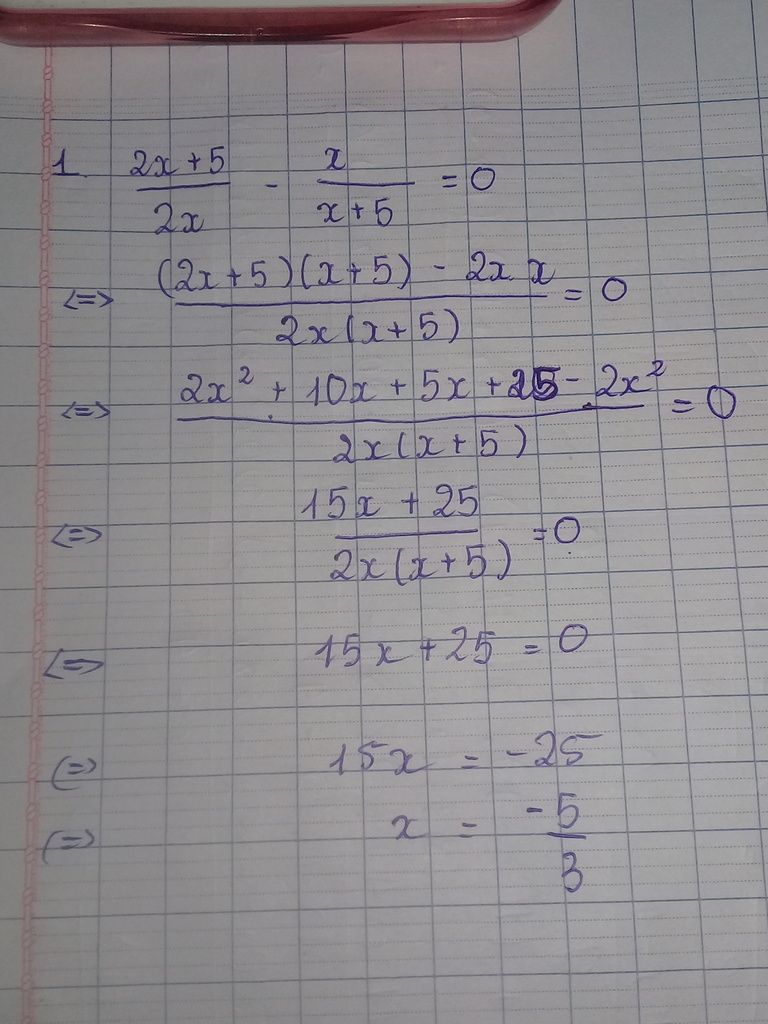 1. (2x+5)/(2x) - x/(x+5) = 0
<=> ((2x+5)(x+5) - 2x.x)/(2x(x+5)) = 0
<=> (2x² + 10x + 5x + 25 - 2x²)/(2x(x+5)) = 0
<=> (15x + 25)/(2x(x+5)) = 0
<=> 15x + 25 = 0
(=> 15x = -25
(=> x = -5/3